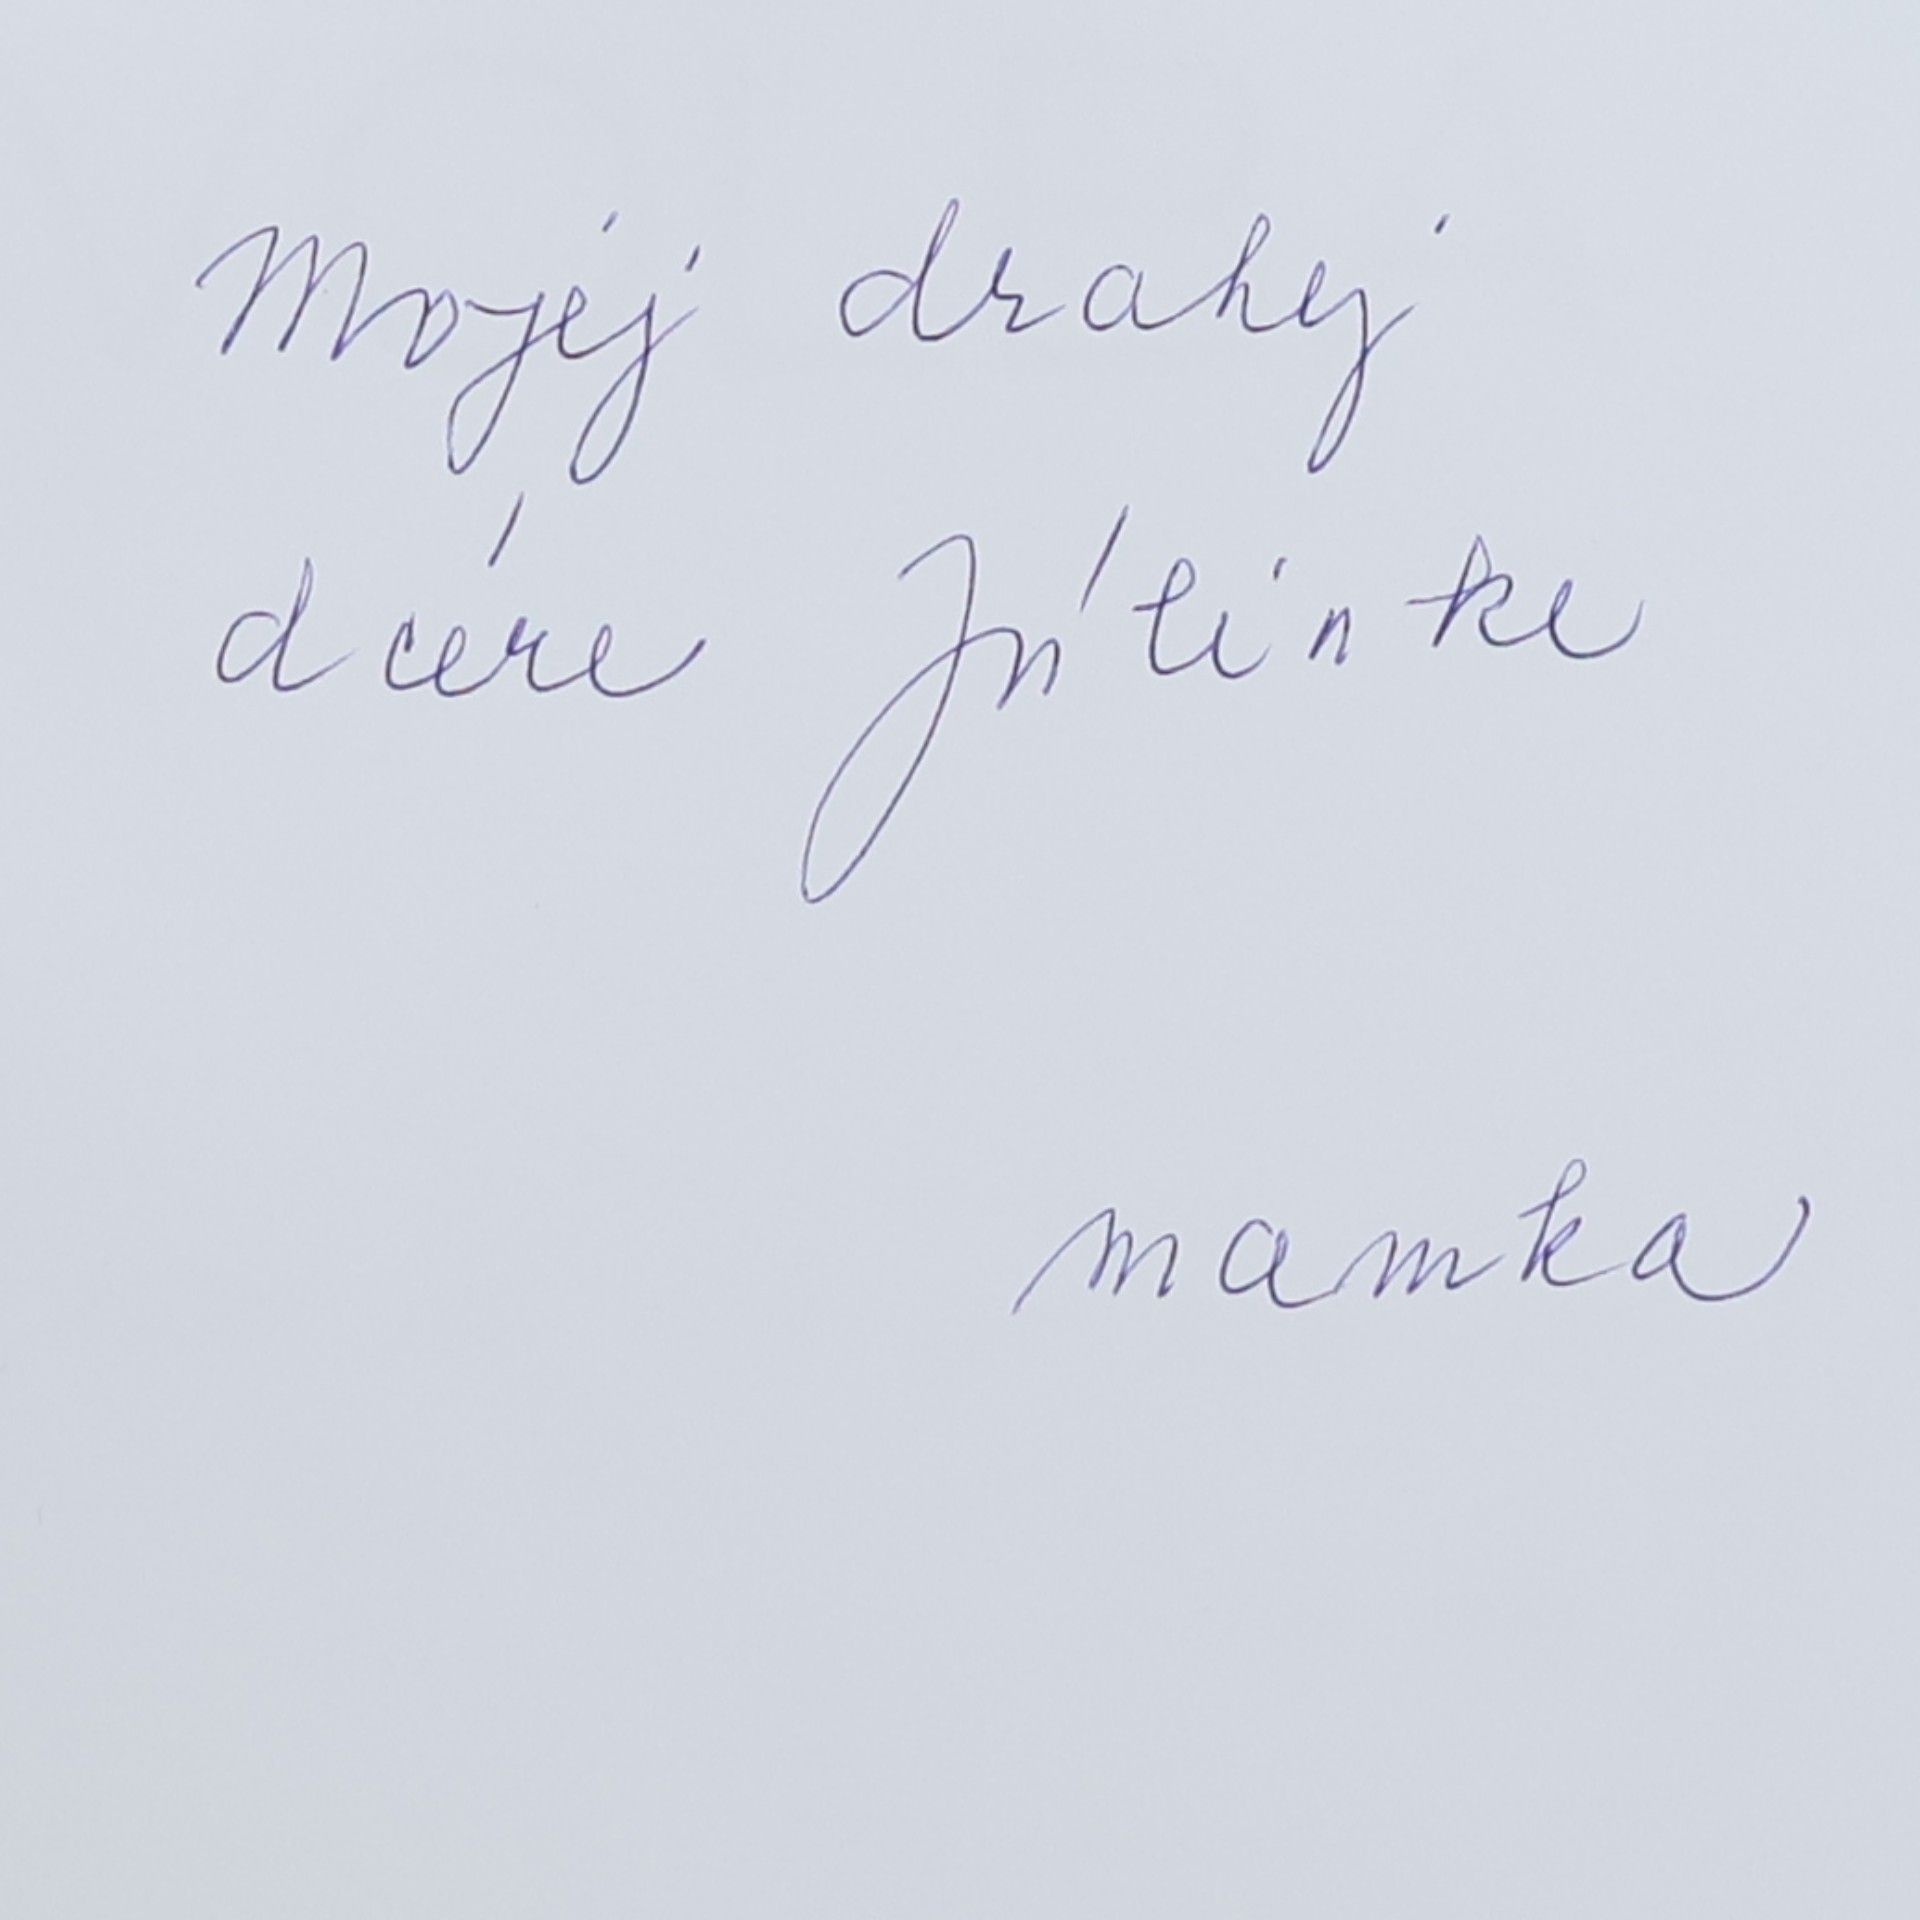 Mojej drahej
dcére Júlinke
mamka